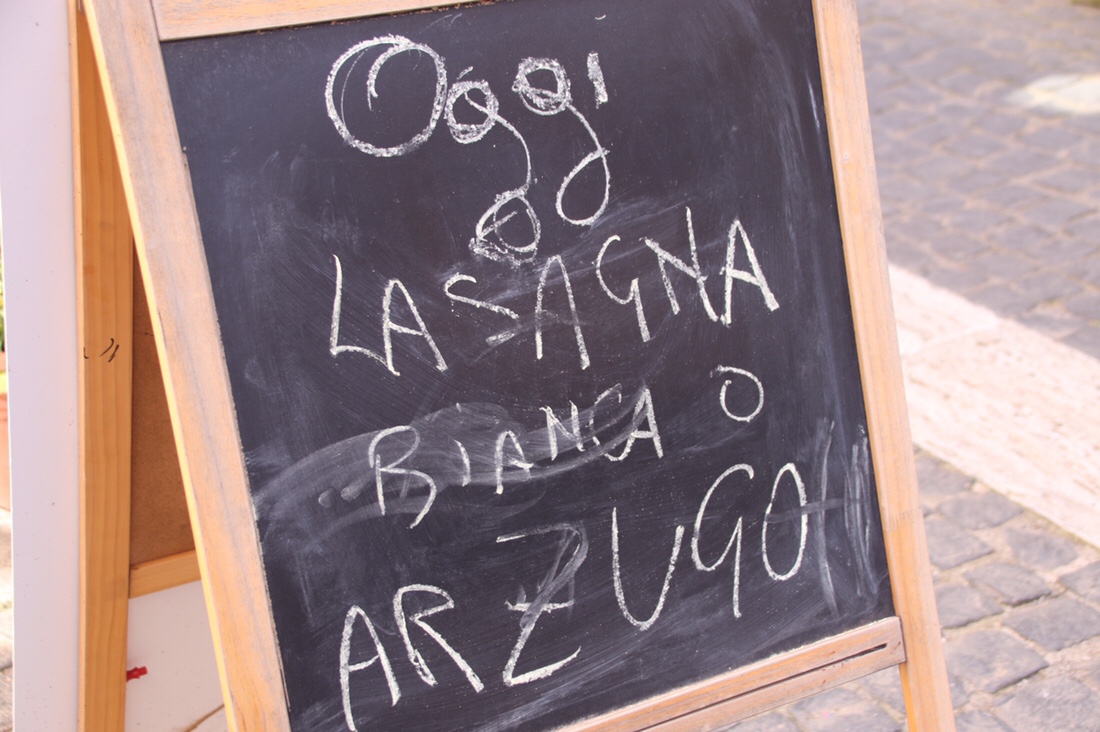 Oggi
LASAGNA
BiANCA O
ARZUGO